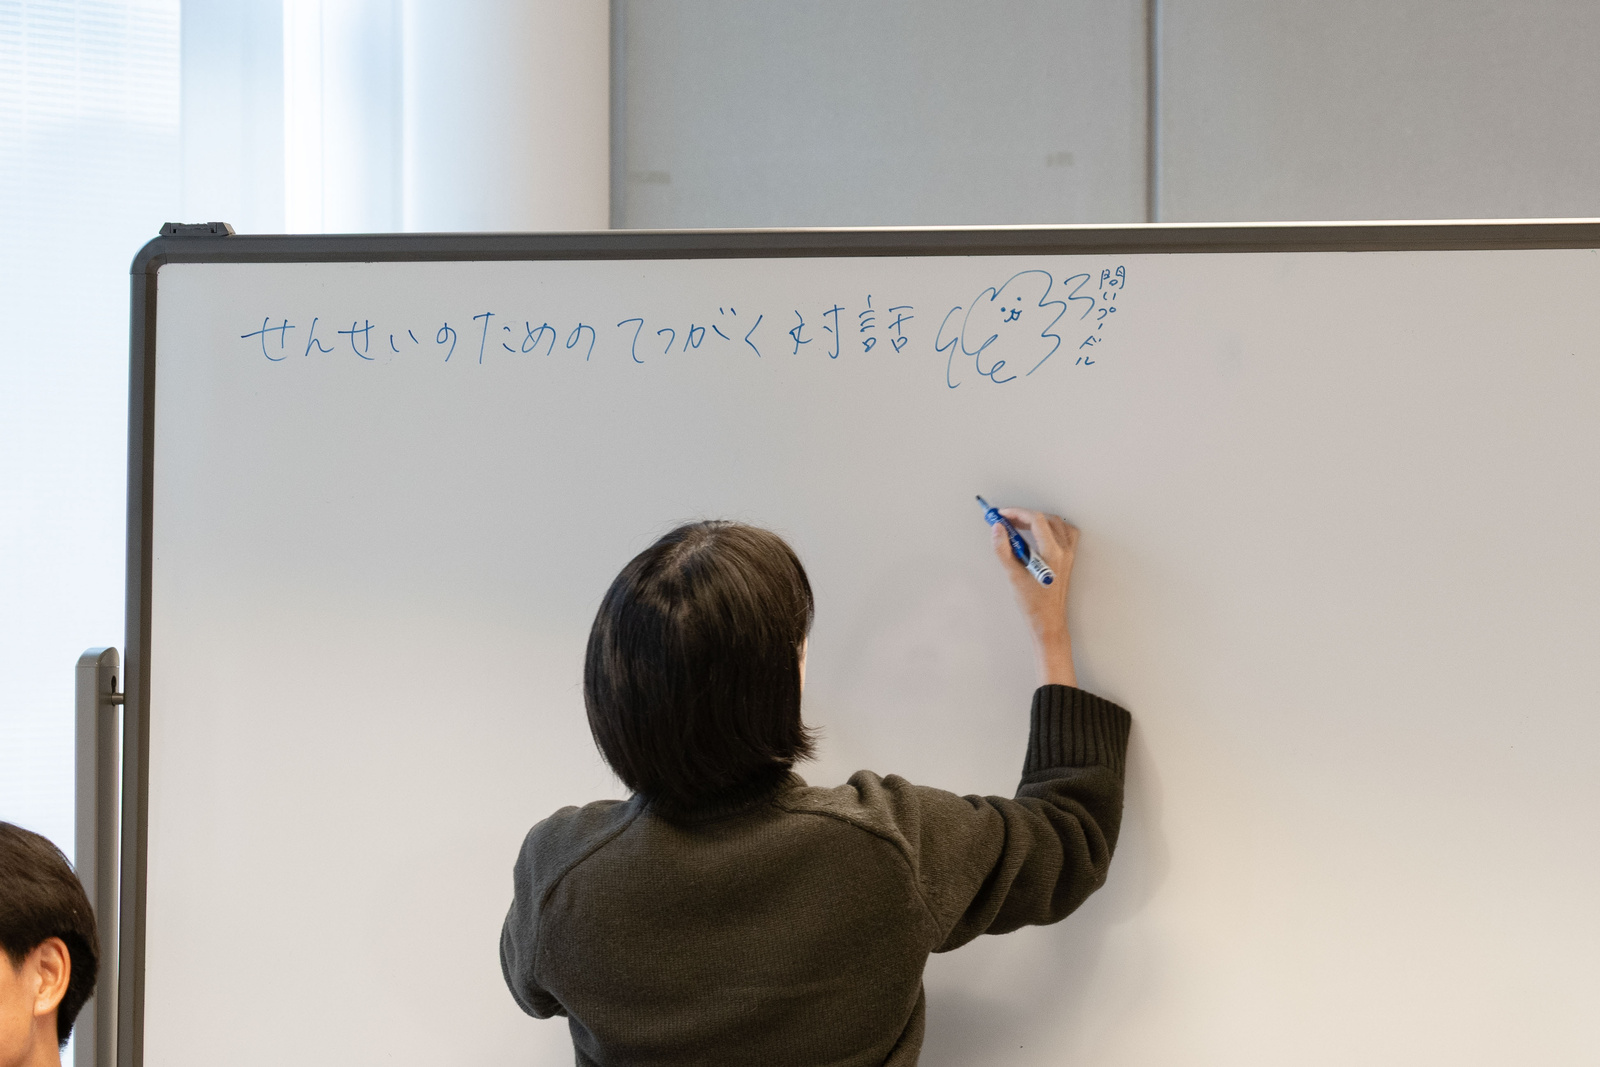 せんせいのためのてつがく対話
問いプードル